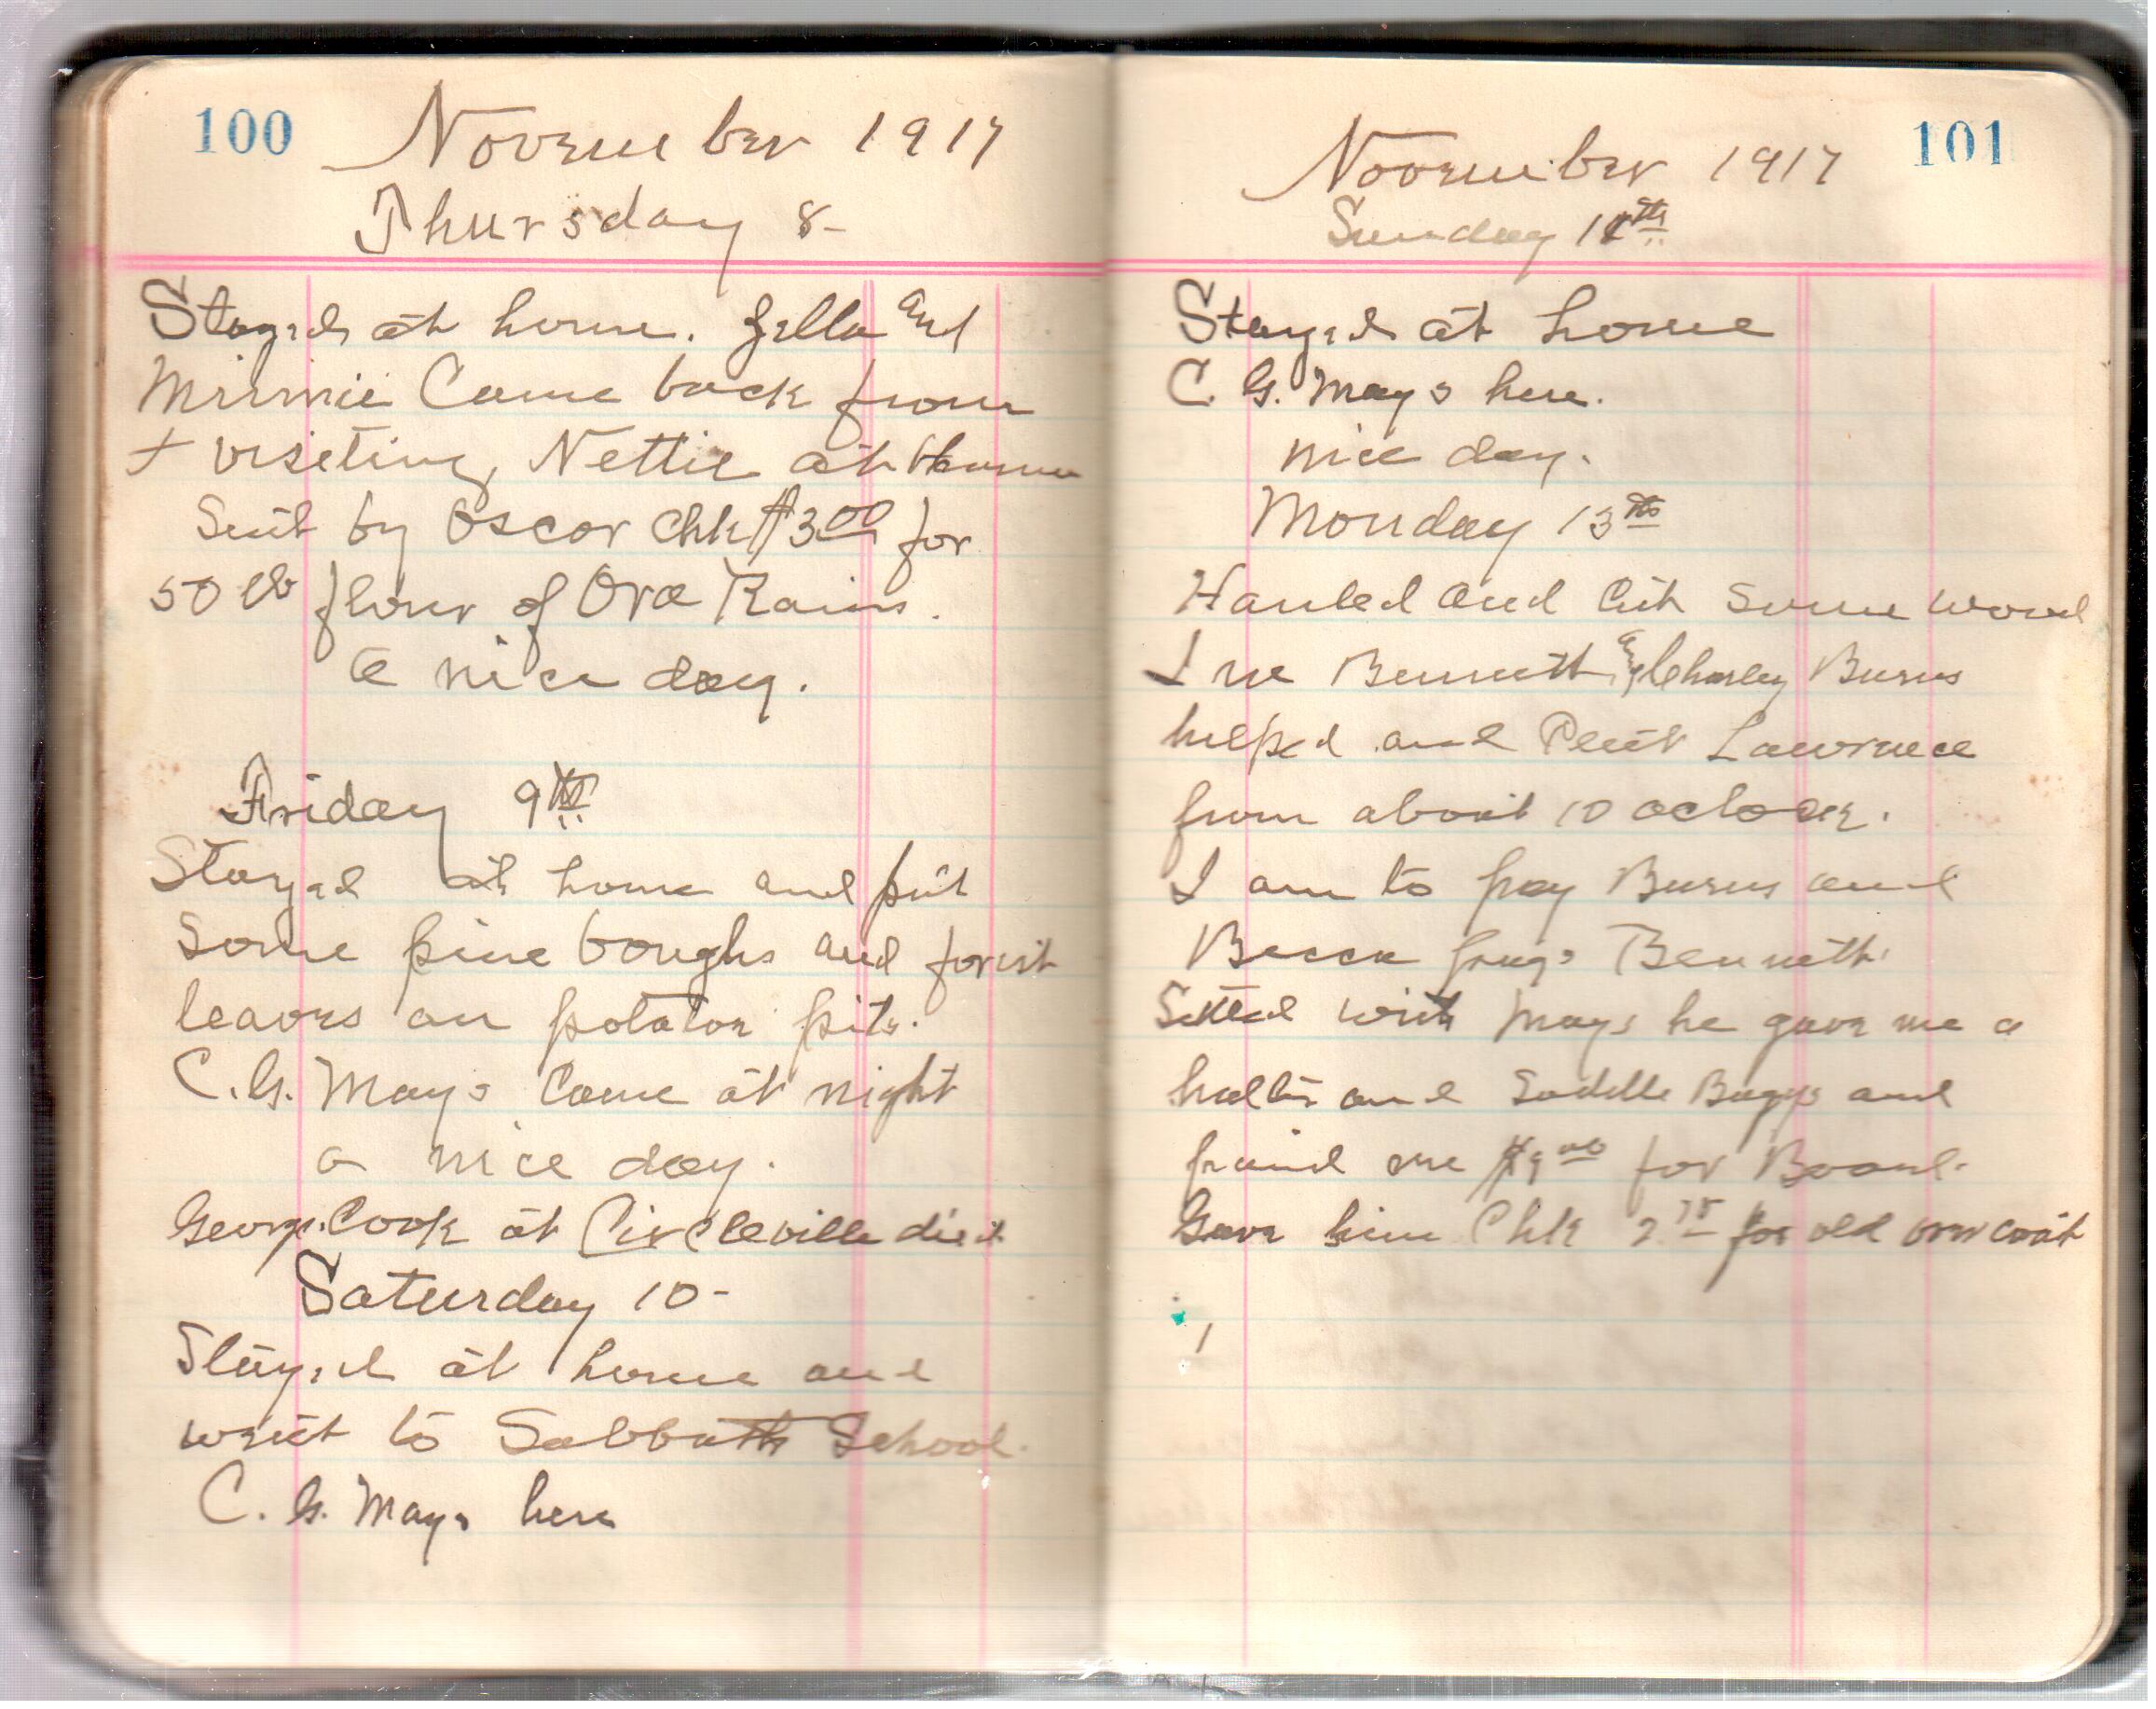 100
November 1917
Thursday 8-
Stayed at home. Zella and
Minnie Came back from
+ viseting, Nettie at Home
Sent by Oscor Chk $3.00 for
50 lb flour of Ora Rains.
a nice day.
Friday 9th
Stayed at home and put
Some pine boughs and forist
leaves on potatoe pits.
C. G. Mays Came at night
a nice day.
George Cook at Circleville died
Saturday 10-
Stayed at home and
went to Sabbath School.
C. G. Mays here
101
November 1917
Sunday 11th
Stayed at home
C. G. Mays here.
nice day.
Monday 13th
Hauled and Cut Some wood
Bennett and Charley Burns
helped and Lawrence
from about 10 oclock.
I am to pay Burns and
pays Bennett
Setteled with Mays he gave me a
halter and Saddle Baggs and
paid me for Board.
Gave him Chk 2 75 for old over coat